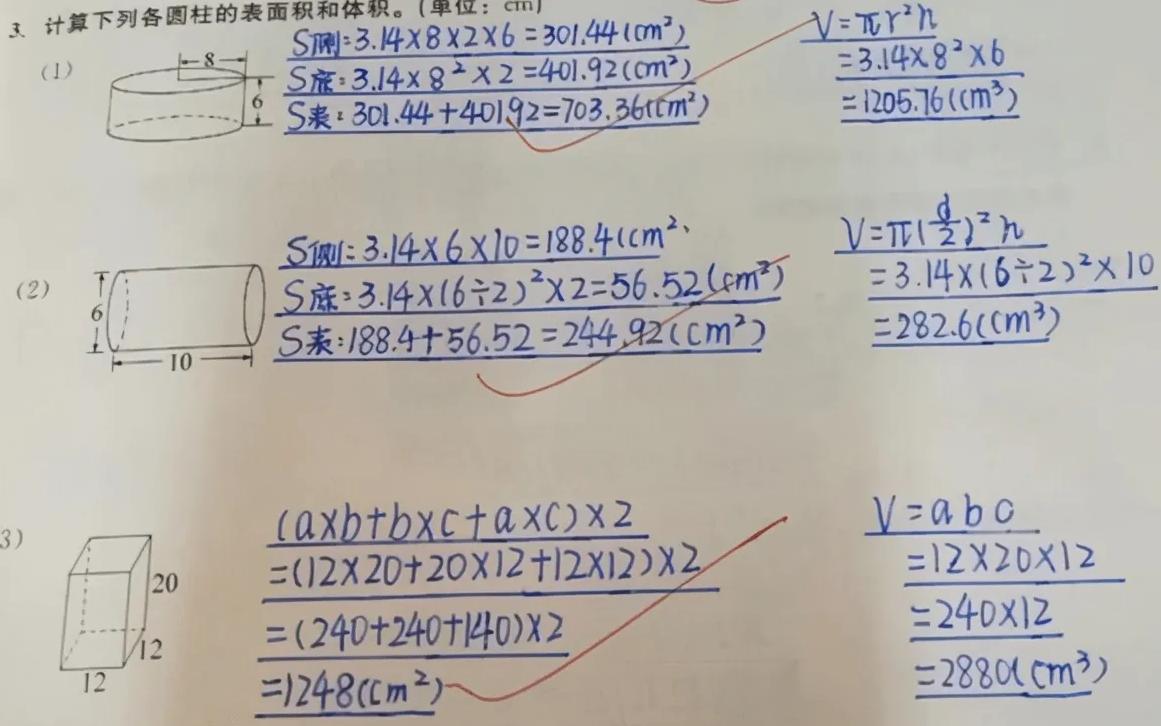 3. 计算下列各圆柱的表面积和体积。(单位：cm)
(1)
8
6
S侧:3.14×8×2×6=301.44(cm²)
S底:3.14×8²×2=401.92(cm²)
S表:301.44+401.92=703.36(cm²)
V=πr²h
=3.14×8²×6
=1205.76(cm³)
(2)
6
10
S侧:3.14×6×10=188.4(cm²
S底:3.14×(6÷2)²×2=56.52(cm²)
S表:188.4+56.52=244.92(cm²)
V=π(d/2)²h
=3.14×(6÷2)²×10
=282.6(cm³)
3)
20
12
12
(a×b+b×c+a×c)×2
=(12×20+20×12+12×12)×2
=(240+240+140)×2
=1248(cm²)
V=abc
=12×20×12
=240×12
=2880(cm³)